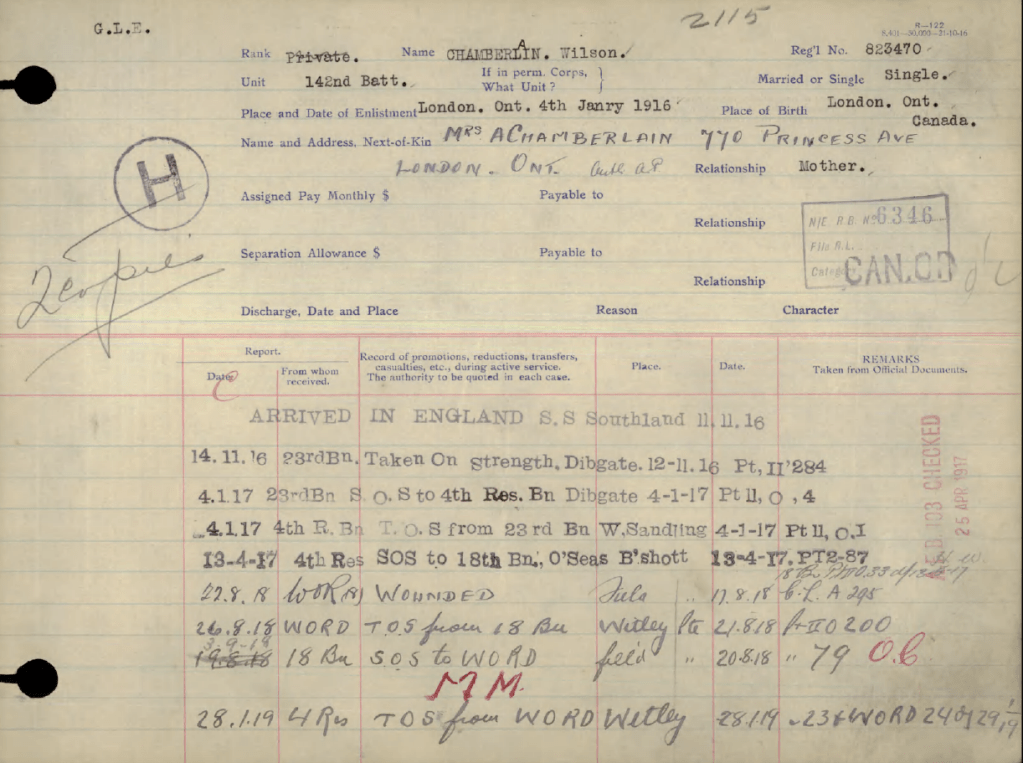 G.L.E.
2115
R—122
Rank Private. Name CHAMBERLAIN. Wilson. Reg'l No. 823470
Unit 142nd Batt. If in perm. Corps, What Unit? Married or Single Single.
Place and Date of Enlistment London. Ont. 4th Janry 1916 Place of Birth London. Ont. Canada.
Name and Address, Next-of-Kin MRS A CHAMBERLAIN 770 PRINCESS AVE
LONDON. ONT. Relationship Mother.
H
Assigned Pay Monthly $ Payable to
Relationship
N/E R.B. No 6346
File R.L.
CAN.O.R
2 copies
Separation Allowance $ Payable to
Relationship
Discharge, Date and Place Reason Character
Report.
Date From whom received. Record of promotions, reductions, transfers, casualties, etc., during active service. The authority to be quoted in each case. Place. Date. REMARKS Taken from Official Documents.
C
ARRIVED IN ENGLAND S.S Southland 11.11.16
14.11.16 23rd Bn. Taken On strength. Dibgate. 12-11.16 Pt, II '284
4.1.17 23rd Bn S.O.S to 4th Res. Bn Dibgate 4-1-17 Pt 11, O, 4
4.1.17 4th R. Bn T.O.S from 23rd Bn W.Sandling 4-1-17 Pt 11, O.1
13-4-17 4th Res SOS to 18th Bn, O'Seas B'shott 13-4-17. PT2-87
22.8.18 WOUNDED 17.8.18 C.L. A 295
26.8.18 WORD T.O.S from 18 Bn Witley Pte 21.8.18 Pt II O 200
3-9-18
19.8.18 18 Bn S.O.S to WORD field " 20.8.18 " 79
M M.
28.1.19 4 Res T.O.S from WORD Witley 28.1.19 23 & WORD 24 of 29/1/19
103 CHECKED
25 APR 1917